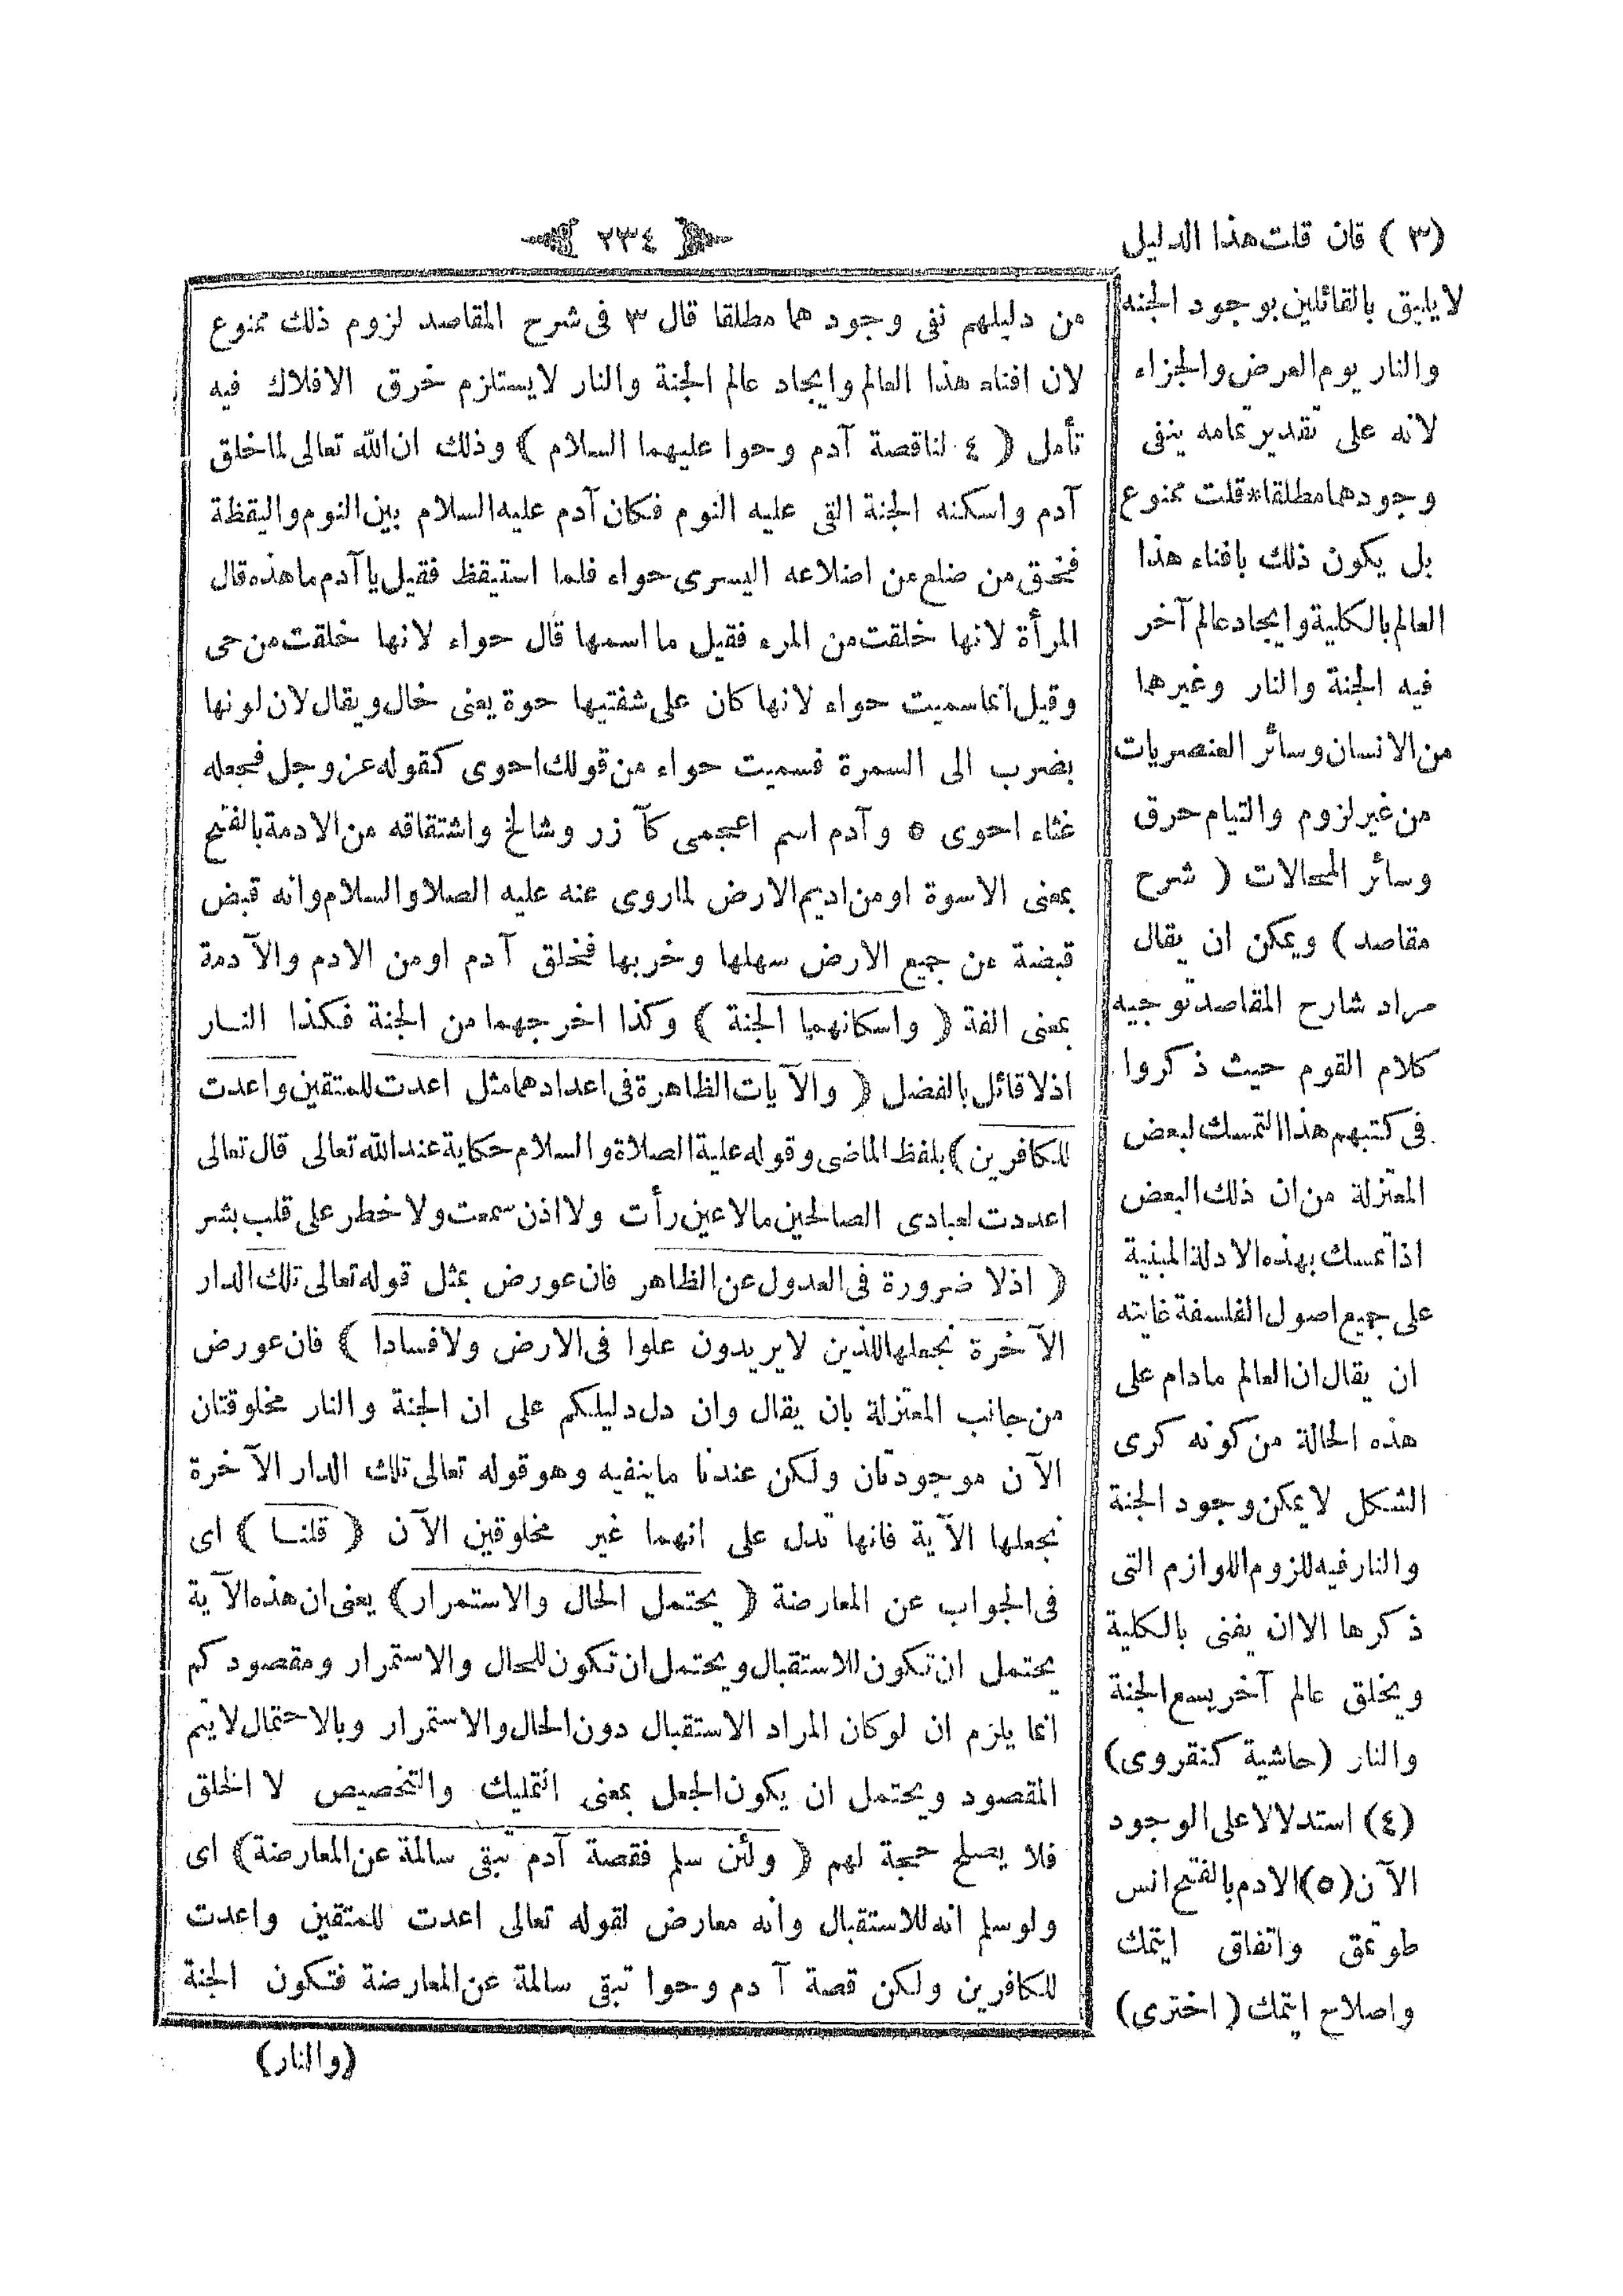 ٢٣٤
من دليلهم نفى وجود هما مطلقا قال ٣ فى شرح المقاصد لزوم ذلك ممنوع
لان افناء هذا العالم وايجاد عالم الجنة والنار لايستلزم خرق الافلاك فيه
تأمل ( ٤ لناقصة آدم وحوا عليهما السلام ) وذلك ان الله تعالى لماخلق
آدم واسكنه الجنة القى عليه النوم فكان آدم عليه السلام بين النوم واليقظة
فخق من ضلع من اضلاعه اليسرى حواء فلما استيقظ فقيل يا آدم ما هذه قال
المرأة لانها خلقت من المرء فقيل ما اسمها قال حواء لانها خلقت من حى
وقيل انماسميت حواء لانها كان على شفتيها حوة يعنى خال ويقال لان لونها
يضرب الى السمرة فسميت حواء من قولك احوى كقوله عز وجل فجعله
غثاء احوى ٥ وآدم اسم اعجمى كآ زر وشالخ واشتقاقه من الادمة بالفتح
بمعنى الاسوة اومن اديم الارض لماروى عنه عليه الصلاو السلام وانه قبض
قبضة عن جميع الارض سهلها وخربها فخلق آدم اومن الادم والآدمة
بمعنى الفة ( واسكانهما الجنة ) وكذا اخرجهما من الجنة فكذا النار
اذلا قائل بالفضل ( والآيات الظاهرة فى اعدادهما مثل اعدت للمتقين واعدت
للكافرين ) بلفظ الماضى وقوله علية الصلاة والسلام حكاية عند الله تعالى قال تعالى
اعددت لعبادى الصالحين مالا عين رأت ولا اذن سمعت ولا خطر على قلب بشر
( اذلا ضرورة فى العدول عن الظاهر فان عورض بمثل قوله تعالى تلك الدار
الآخرة نجعلها للذين لايريدون علوا فى الارض ولافسادا ) فان عورض
من جانب المعتزلة بان يقال وان دل دليلكم على ان الجنة والنار مخلوقتان
الآن موجودتان ولكن عندنا ماينفيه وهو قوله تعالى تلك الدار الآخرة
نجعلها الآية فانها تدل على انهما غير مخلوقين الآن ( قلنا ) اى
فى الجواب عن المعارضة ( يحتمل الحال والاستمرار ) يعنى ان هذه الآية
يحتمل ان تكون للاستقبال ويحتمل ان تكون للحال والاستمرار ومقصود كم
انما يلزم ان لو كان المراد الاستقبال دون الحال والاستمرار وبالاحتمال لايتم
المقصود ويحتمل ان يكون الجعل بمعنى التمليك والتخصيص لا الخلق
فلا يصلح حجة لهم ( ولئن سلم فقصة آدم تبقى سالمة عن المعارضة ) اى
ولو سلم انه للاستقبال وانه معارض لقوله تعالى اعدت للمتقين واعدت
للكافرين ولكن قصة آدم وحوا تبقى سالمة عن المعارضة فتكون الجنة
(والنار)
(٣) قان قلت هذا الدليل
لايليق بالقائلين بوجود الجنه
والنار يوم العرض والجزاء
لانه على تقدير تمامه ينفى
وجودهما مطلقا * قلت ممنوع
بل يكون ذلك بافناء هذا
العالم بالكلية وايجاد عالم آخر
فيه الجنة والنار وغيرها
من الانسان وسائر العنصريات
من غير لزوم والتيام حرق
وسائر المحالات ( شرح
مقاصد ) ويمكن ان يقال
مراد شارح المقاصد توجيه
كلام القوم حيث ذكروا
فى كتبهم هذا التمسك لبعض
المعتزلة من ان ذلك البعض
اذا تمسك بهذه الادلة المبنية
على جميع اصول الفلسفة غايته
ان يقال ان العالم مادام على
هذه الحالة من كونه كرى
الشكل لا يمكن وجود الجنة
والنار فيه للزوم اللوازم التى
ذكرها الا ان يفنى بالكلية
ويخلق عالم آخر يسع الجنة
والنار (حاشية كنقروى)
(٤) استدلالا على الوجود
الآن (٥) الادم بالفتح انس
طوتمق واتفاق ايتمك
واصلاح ايتمك ( اخترى )